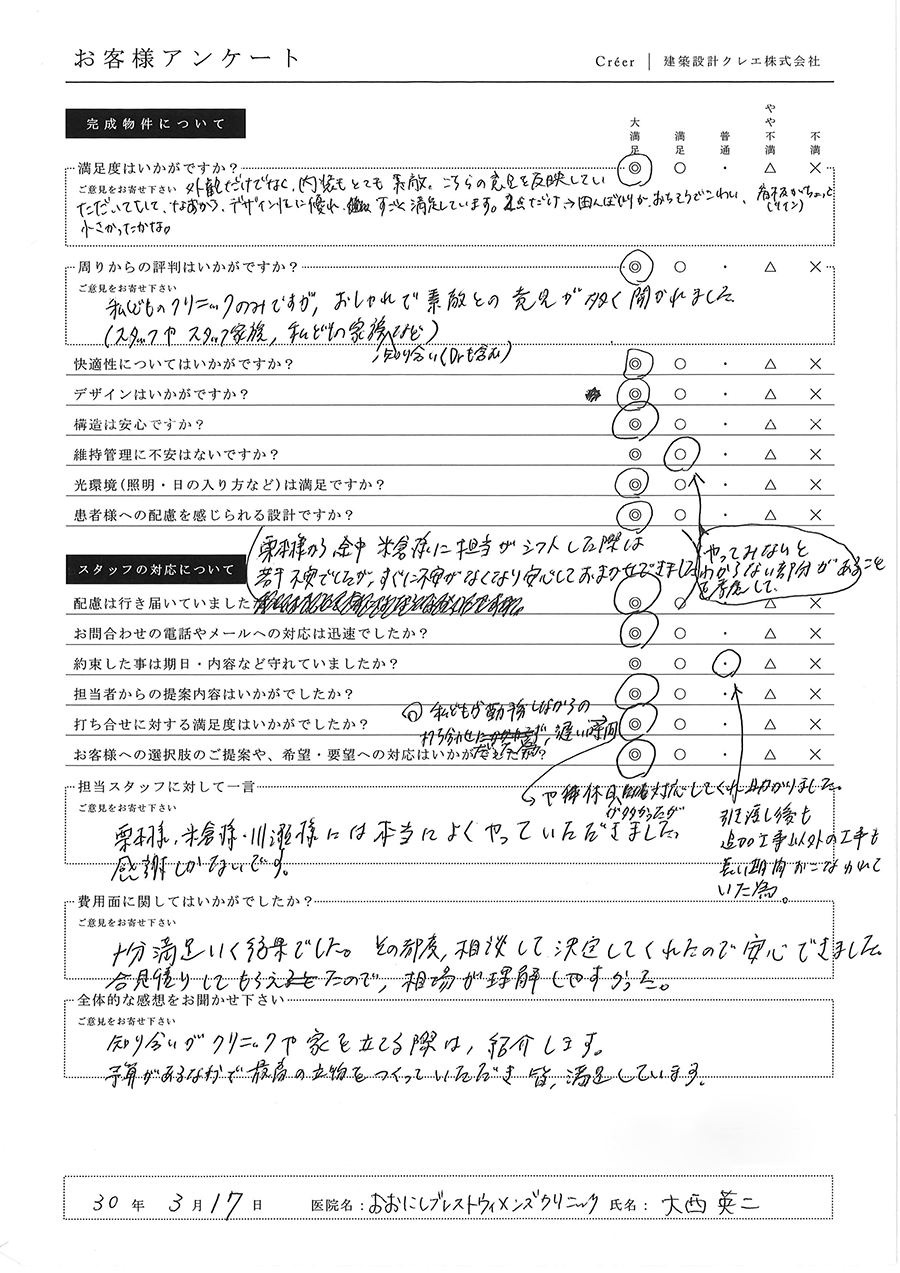 お客様アンケート
Créer | 建築設計クレエ株式会社
完成物件について
大満足 満足 普通 やや不満 不満
満足度はいかがですか? ◎ ○ ・ △ ×
ご意見をお寄せ下さい 外観だけでなく、内装もとても素敵。こちらの意見を反映してい
ただいてもいて、なおかつ、デザイン性に優れ、すごく満足しています。 看板がちょっと
(サイン)
小さかったかな。
周りからの評判はいかがですか? ◎ ○ ・ △ ×
ご意見をお寄せ下さい
私どものクリニックのみですが、おしゃれで素敵との意見が多く聞かれました
(スタッフや スタッフ家族, 私どもの家族など)
、知り合い(Drも含む)
快適性についてはいかがですか? ◎ ○ ・ △ ×
デザインはいかがですか? ◎ ○ ・ △ ×
構造は安心ですか? ◎ ○ ・ △ ×
維持管理に不安はないですか? ◎ ○ ・ △ ×
光環境(照明・日の入り方など)は満足ですか? ◎ ○ ・ △ ×
患者様への配慮を感じられる設計ですか? ◎ ○ ・ △ ×
栗本様から途中 米倉様に担当がシフトした際は
若干不安でしたが、すぐに不安がなくなり安心しておまかせできました
やってみないと
わからない部分があること
を考慮して、
スタッフの対応について
配慮は行き届いていました ◎ ○ ・ △ ×
お問合わせの電話やメールへの対応は迅速でしたか? ◎ ○ ・ △ ×
約束した事は期日・内容など守れていましたか? ◎ ○ ・ △ ×
担当者からの提案内容はいかがでしたか? ◎ ○ ・ △ ×
私どもが勤務しながらの
打ち合せに対する満足度はいかがでしたか? ◎ ○ ・ △ ×
打ち合わせ 遅い時間
お客様への選択肢のご提案や、希望・要望への対応はいかがでしたか? ◎ ○ ・ △ ×
担当スタッフに対して一言
や 休日 対応してくれ助かりました。
が多かったが
ご意見をお寄せ下さい
引き渡し後も
追加工事以外の工事も
長い期間おこなわれて
いた為。
栗本様、米倉様・川瀬様には本当によくやっていただきました。
感謝しかないです。
費用面に関してはいかがでしたか?
ご意見をお寄せ下さい
十分満足いく結果でした。その都度、相談して決定してくれたので安心できました。
合見積りしてもらえたので、相場が理解しやすかった。
全体的な感想をお聞かせ下さい
ご意見をお寄せ下さい
知り合いがクリニックや家を立てる際は、紹介します。
予算があるなかで最高の立物をつくっていただき皆、満足しています。
30 年 3 月 17 日 医院名:おおにしブレストウィメンズクリニック 氏名: 大西 英二